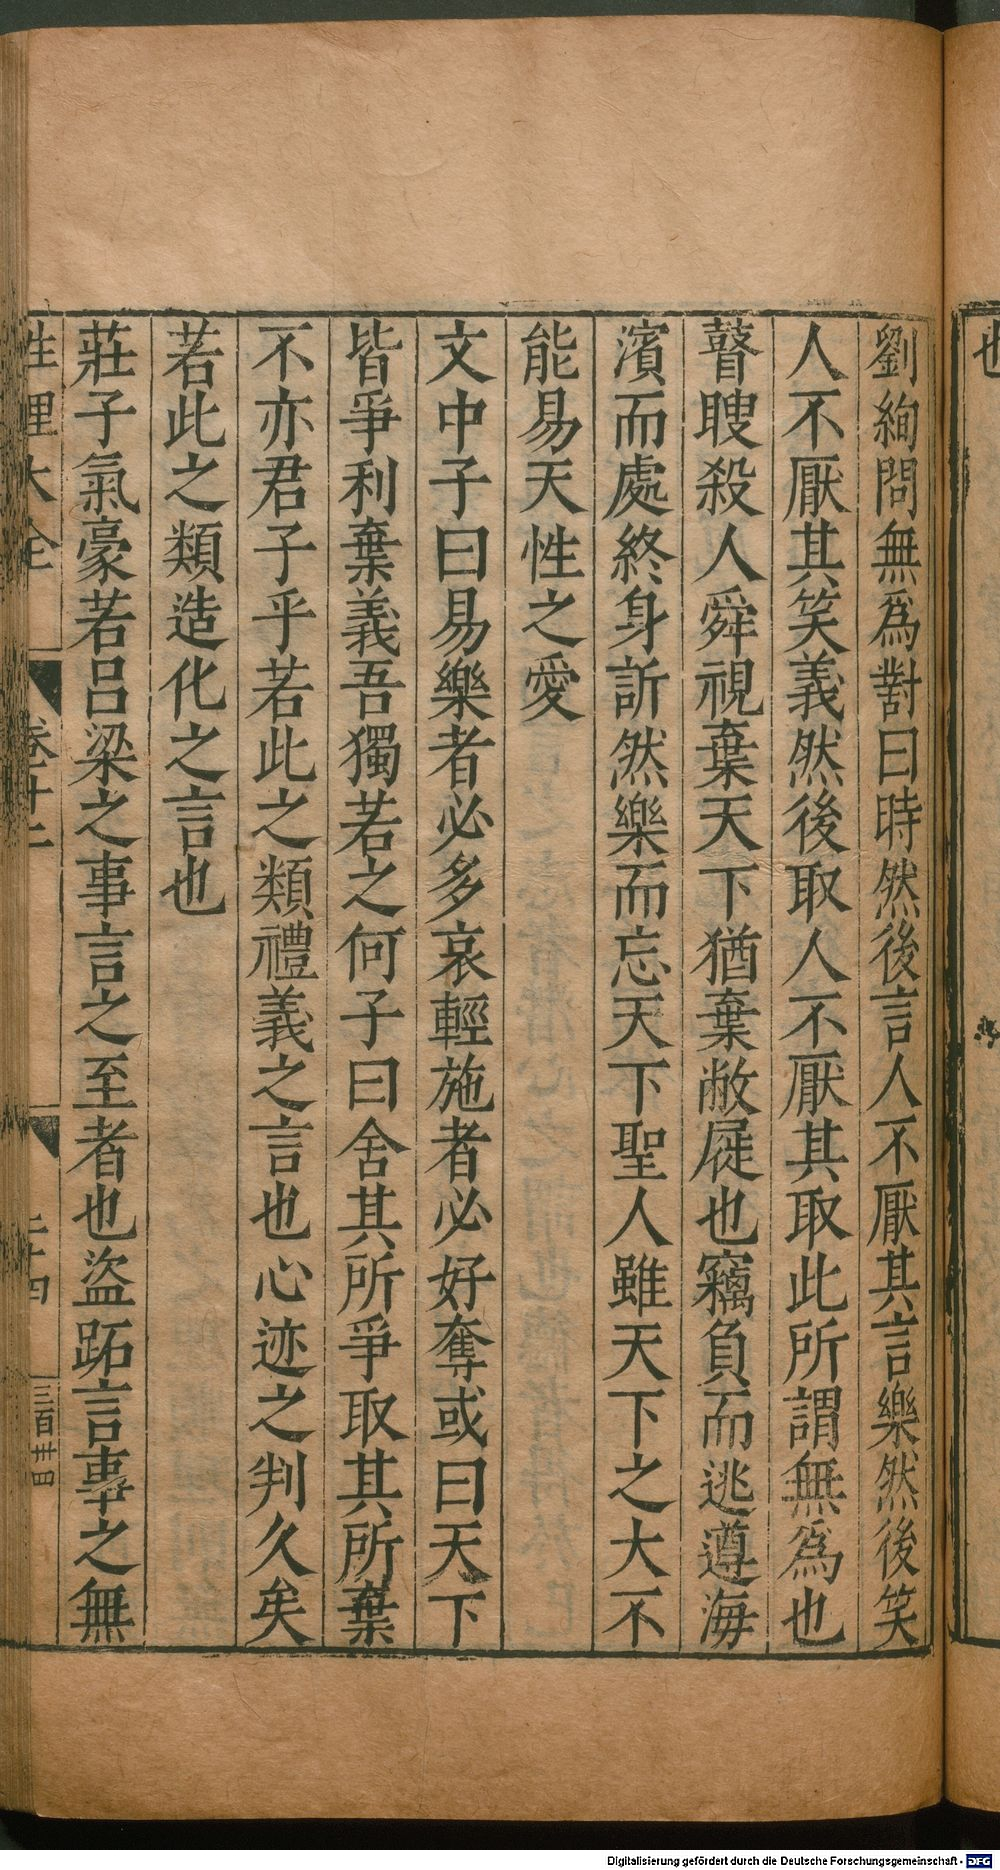 也
劉絢問無為對曰時然後言人不厭其言樂然後笑
人不厭其笑義然後取人不厭其取此所謂無為也
瞽瞍殺人舜視棄天下猶棄敝屣也竊負而逃遵海
濱而處終身訢然樂而忘天下聖人雖天下之大不
能易天性之愛
文中子曰易樂者必多哀輕施者必好奪或曰天下
皆爭利棄義吾獨若之何子曰舍其所爭取其所棄
不亦君子乎若此之類禮義之言也心迹之判久矣
若此之類造化之言也
莊子氣豪若呂梁之事言之至者也盜跖言事之無
性理大全
卷十二
二十四
三百卅四
Digitalisierung gefördert durch die Deutsche Forschungsgemeinschaft - DFG